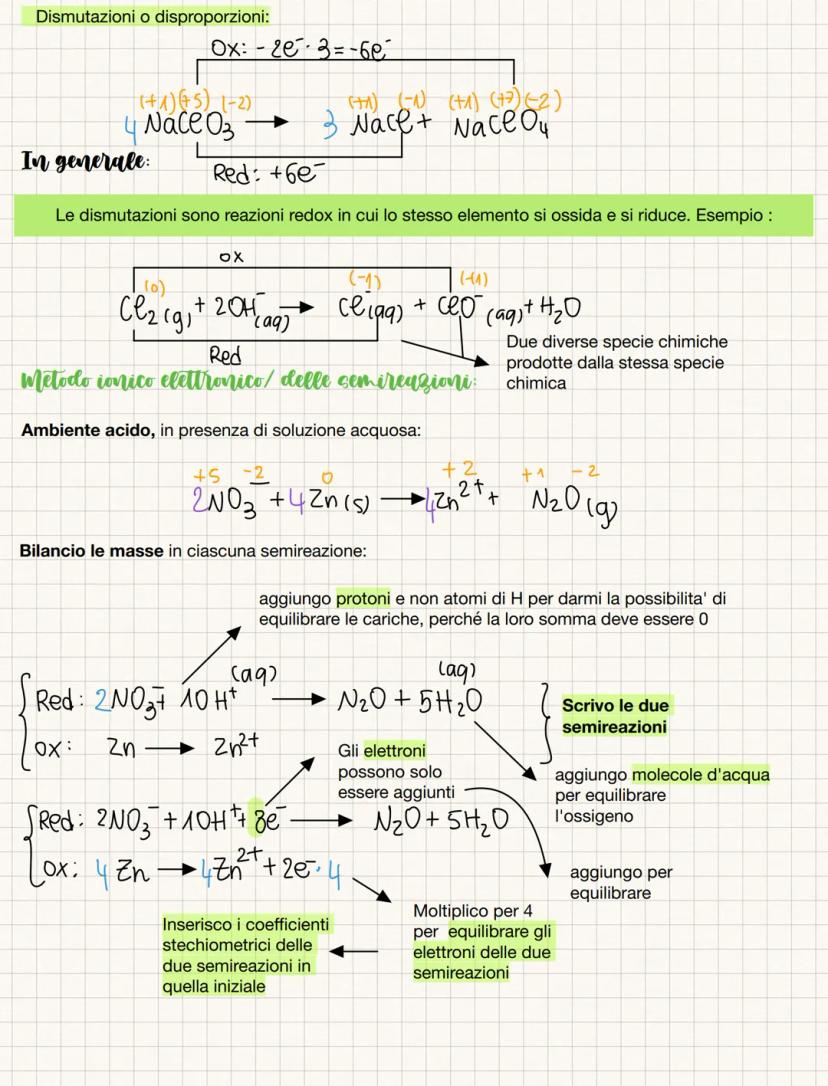 Dismutazioni o disproporzioni:
Ox: -2e⁻·3=-6e⁻
(+1)(+5)(-2) (+1) (-1) (+1) (+7)(-2)
4 NaClO₃ → 3 NaCl + NaClO₄
In generale:
Red: +6e⁻
Le dismutazioni sono reazioni redox in cui lo stesso elemento si ossida e si riduce. Esempio :
ox
(0) (-1) (+1)
Cl₂(g) + 2OH⁻(aq) → Cl⁻(aq) + ClO⁻(aq) + H₂O
Red
Due diverse specie chimiche
prodotte dalla stessa specie
chimica
Metodo ionico elettronico/ delle semireazioni:
Ambiente acido, in presenza di soluzione acquosa:
+5 -2 0 +2 +1 -2
2NO₃⁻ + 4Zn(s) → 4Zn²⁺ + N₂O(g)
Bilancio le masse in ciascuna semireazione:
aggiungo protoni e non atomi di H per darmi la possibilita' di
equilibrare le cariche, perché la loro somma deve essere 0
(aq) (aq)
Red: 2NO₃⁻ + 10H⁺ → N₂O + 5H₂O
Ox: Zn → Zn²⁺
Scrivo le due
semireazioni
Gli elettroni
possono solo
essere aggiunti
aggiungo molecole d'acqua
per equilibrare
l'ossigeno
Red: 2NO₃⁻ + 10H⁺ + 8e⁻ → N₂O + 5H₂O
Ox: 4 Zn → 4Zn²⁺ + 2e⁻·4
aggiungo per
equilibrare
Moltiplico per 4
per equilibrare gli
elettroni delle due
semireazioni
Inserisco i coefficienti
stechiometrici delle
due semireazioni in
quella iniziale